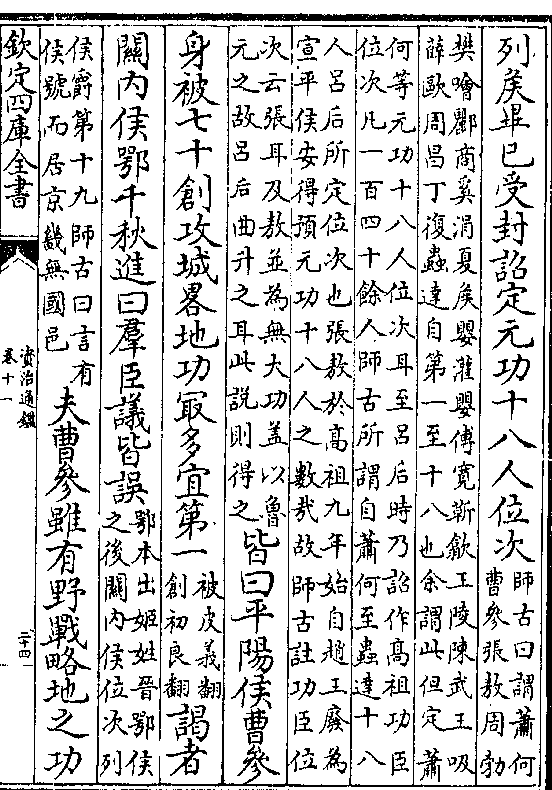 列矦畢已受封詔定元功十八人位次師古曰謂蕭何
曹參張敖周勃
樊噲酈商奚涓夏矦嬰灌嬰傅寛靳歙王陵陳武王吸
薛歐周昌丁復蟲達自第一至十八也余謂此但定蕭
何等元功十八人位次耳至呂后時乃詔作髙祖功臣
位次凡一百四十餘人師古所謂自蕭何至蟲達十八
人呂后所定位次也張敖於高祖九年始自趙王廢為
宣平侯安得預元功十八人之數哉故師古註功臣位
次云張耳及敖並為無大功盖以魯
元之故呂后曲升之耳此説則得之
皆曰平陽侯曹參
身被七十創攻城畧地功冣多宜第一
被皮義翻
創初良翻
謁者
關内侯鄂千秋進曰羣臣議皆誤
鄂本出姬姓晉鄂侯
之後關内侯位次列
侯爵第十九師古曰言有
侯號而居京畿無國邑
夫曹參雖有野戰略地之功
欽定四庫全書
資治通鑑
卷十一
二十四